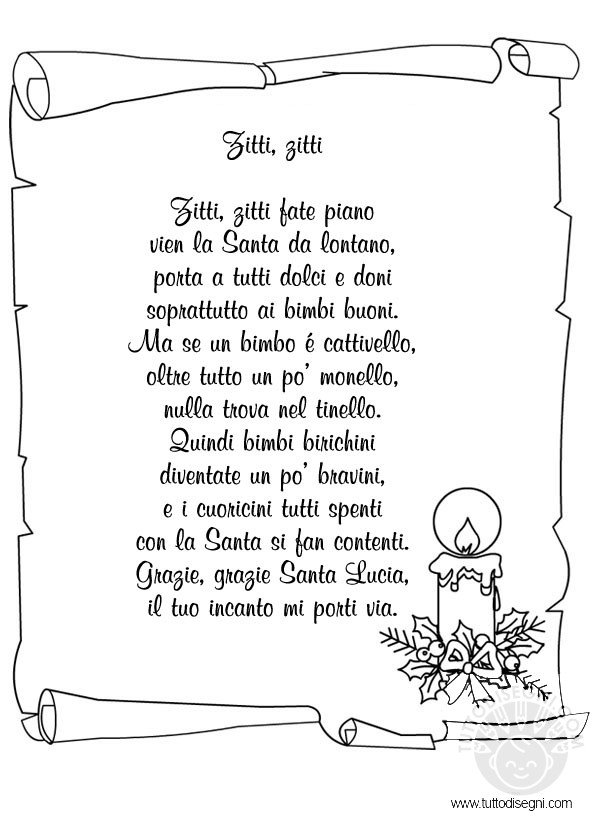 Zitti, zitti
Zitti, zitti fate piano
vien la Santa da lontano,
porta a tutti dolci e doni
soprattutto ai bimbi buoni.
Ma se un bimbo é cattivello,
oltre tutto un po' monello,
nulla trova nel tinello.
Quindi bimbi birichini
diventate un po' bravini,
e i cuoricini tutti spenti
con la Santa si fan contenti.
Grazie, grazie Santa Lucia,
il tuo incanto mi porti via.
TUTTODISEGNI.COM
www.tuttodisegni.com